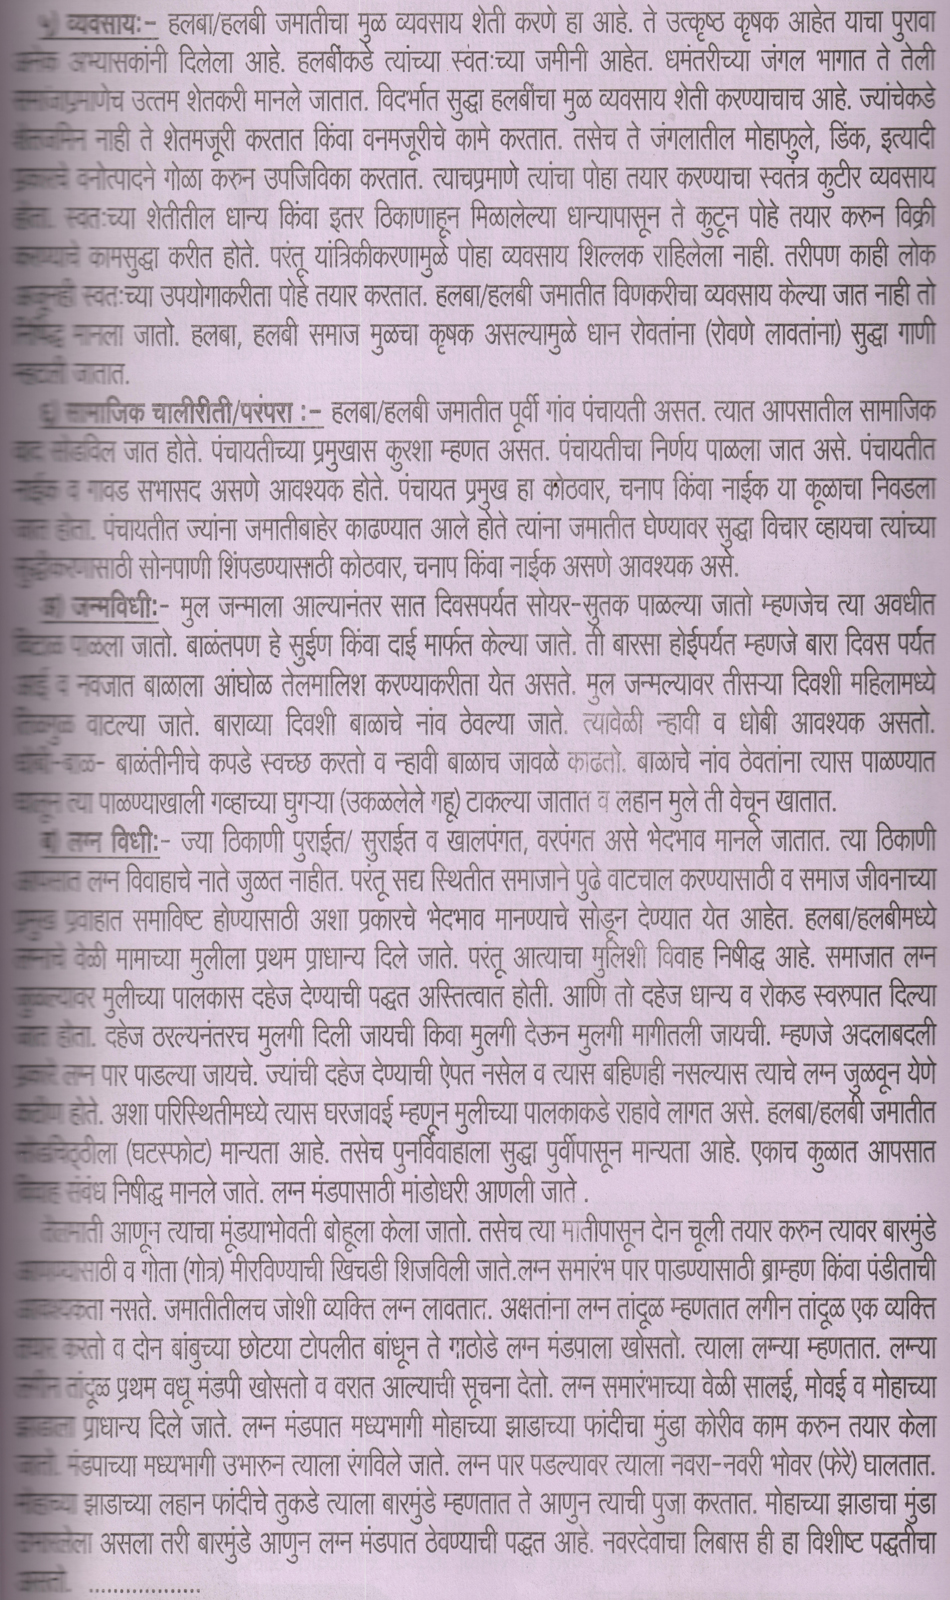 ५) व्यवसाय:- हलबा/हलबी जमातीचा मुळ व्यवसाय शेती करणे हा आहे. ते उत्कृष्ठ कृषक आहेत याचा पुरावा
अनेक अभ्यासकांनी दिलेला आहे. हलबींकडे त्यांच्या स्वतःच्या जमीनी आहेत. धमंतरीच्या जंगल भागात ते तेली
समाजाप्रमाणेच उत्तम शेतकरी मानले जातात. विदर्भात सुद्धा हलबींचा मुळ व्यवसाय शेती करण्याचाच आहे. ज्यांचेकडे
शेतजमिन नाही ते शेतमजूरी करतात किंवा वनमजूरीचे कामे करतात. तसेच ते जंगलातील मोहाफुले, डिंक, इत्यादी
प्रकारचे वनोत्पादने गोळा करुन उपजिविका करतात. त्याचप्रमाणे त्यांचा पोहा तयार करण्याचा स्वतंत्र कुटीर व्यवसाय
होता. स्वतःच्या शेतीतील धान्य किंवा इतर ठिकाणाहून मिळालेल्या धान्यापासून ते कुटून पोहे तयार करुन विक्री
करण्याचे कामसुद्धा करीत होते. परंतू यांत्रिकीकरणामुळे पोहा व्यवसाय शिल्लक राहिलेला नाही. तरीपण काही लोक
अजूनही स्वतःच्या उपयोगाकरीता पोहे तयार करतात. हलबा/हलबी जमातीत विणकरीचा व्यवसाय केल्या जात नाही तो
निषिद्ध मानला जातो. हलबा, हलबी समाज मुळचा कृषक असल्यामुळे धान रोवतांना (रोवणे लावतांना) सुद्धा गाणी
म्हटली जातात.
६) सामाजिक चालीरीती/परंपरा :- हलबा/हलबी जमातीत पूर्वी गांव पंचायती असत. त्यात आपसातील सामाजिक
वाद सोडविल जात होते. पंचायतीच्या प्रमुखास कुरशा म्हणत असत. पंचायतीचा निर्णय पाळला जात असे. पंचायतीत
नाईक व गावड सभासद असणे आवश्यक होते. पंचायत प्रमुख हा कोठवार, चनाप किंवा नाईक या कूळाचा निवडला
जात होता. पंचायतीत ज्यांना जमातीबाहेर काढण्यात आले होते त्यांना जमातीत घेण्यावर सुद्धा विचार व्हायचा त्यांच्या
शुद्धीकरणासाठी सोनपाणी शिंपडण्यासाठी कोठवार, चनाप किंवा नाईक असणे आवश्यक असे.
अ) जन्मविधी:- मुल जन्माला आल्यानंतर सात दिवसपर्यंत सोयर-सुतक पाळल्या जातो म्हणजेच त्या अवधीत
विटाळ पाळला जातो. बाळंतपण हे सुईण किंवा दाई मार्फत केल्या जाते. ती बारसा होईपर्यंत म्हणजे बारा दिवस पर्यंत
आई व नवजात बाळाला आंघोळ तेलमालिश करण्याकरीता येत असते. मुल जन्मल्यावर तीसऱ्या दिवशी महिलामध्ये
तिळगुळ वाटल्या जाते. बाराव्या दिवशी बाळाचे नांव ठेवल्या जाते. त्यावेळी न्हावी व धोबी आवश्यक असतो.
धोबी-बाळ- बाळंतीनीचे कपडे स्वच्छ करतो व न्हावी बाळाच जावळे काढतो. बाळाचे नांव ठेवतांना त्यास पाळण्यात
घालून त्या पाळण्याखाली गव्हाच्या घुगऱ्या (उकळलेले गहू) टाकल्या जातात व लहान मुले ती वेचून खातात.
ब) लग्न विधी:- ज्या ठिकाणी पुराईत/ सुराईत व खालपंगत, वरपंगत असे भेदभाव मानले जातात. त्या ठिकाणी
आपसात लग्न विवाहाचे नाते जुळत नाहीत. परंतू सद्य स्थितीत समाजाने पुढे वाटचाल करण्यासाठी व समाज जीवनाच्या
प्रमुख प्रवाहात समाविष्ट होण्यासाठी अशा प्रकारचे भेदभाव मानण्याचे सोडून देण्यात येत आहेत. हलबा/हलबीमध्ये
लग्नाचे वेळी मामाच्या मुलीला प्रथम प्राधान्य दिले जाते. परंतू आत्याचा मुलिशी विवाह निषीद्ध आहे. समाजात लग्न
जुळल्यावर मुलीच्या पालकास दहेज देण्याची पद्धत अस्तित्वात होती. आणि तो दहेज धान्य व रोकड स्वरुपात दिल्या
जात होता. दहेज ठरल्यनंतरच मुलगी दिली जायची किवा मुलगी देऊन मुलगी मागीतली जायची. म्हणजे अदलाबदली
प्रकारे लग्न पार पाडल्या जायचे. ज्यांची दहेज देण्याची ऐपत नसेल व त्यास बहिणही नसल्यास त्याचे लग्न जुळवून येणे
कठीण होते. अशा परिस्थितीमध्ये त्यास घरजावई म्हणून मुलीच्या पालकाकडे राहावे लागत असे. हलबा/हलबी जमातीत
सोडचिठ्ठीला (घटस्फोट) मान्यता आहे. तसेच पुनर्विवाहाला सुद्धा पुर्वीपासून मान्यता आहे. एकाच कुळात आपसात
विवाह संबंध निषीद्ध मानले जाते. लग्न मंडपासाठी मांडोधरी आणली जाते .
तेलमाती आणून त्याचा मूंडयाभोवती बोहूला केला जातो. तसेच त्या मातीपासून दोन चूली तयार करुन त्यावर बारमुंडे
व गोता (गोत्र) मीरविण्याची खिचडी शिजविली जाते.लग्न समारंभ पार पाडण्यासाठी ब्राम्हण किंवा पंडीताची
आवश्यकता नसते. जमातीतीलच जोशी व्यक्ति लग्न लावतात. अक्षतांना लग्न तांदूळ म्हणतात लगीन तांदूळ एक व्यक्ति
तयार करतो व दोन बांबुच्या छोटया टोपलीत बांधून ते गाठोडे लग्न मंडपाला खोसतो. त्याला लग्न्या म्हणतात. लग्न्या
लगीन तांदूळ प्रथम वधू मंडपी खोसतो व वरात आल्याची सूचना देतो. लग्न समारंभाच्या वेळी सालई, मोवई व मोहाच्या
झाडाला प्राधान्य दिले जाते. लग्न मंडपात मध्यभागी मोहाच्या झाडाच्या फांदीचा मुंडा कोरीव काम करुन तयार केला
जातो. मंडपाच्या मध्यभागी उभारुन त्याला रंगविले जाते. लग्न पार पडल्यावर त्याला नवरा-नवरी भोवर (फेरे) घालतात.
मोहाच्या झाडाच्या लहान फांदीचे तुकडे त्याला बारमुंडे म्हणतात ते आणुन त्याची पुजा करतात. मोहाच्या झाडाचा मुंडा
असला तरी बारमुंडे आणुन लग्न मंडपात ठेवण्याची पद्धत आहे. नवरदेवाचा लिबास ही हा विशीष्ट पद्धतीचा
असतो. ..................